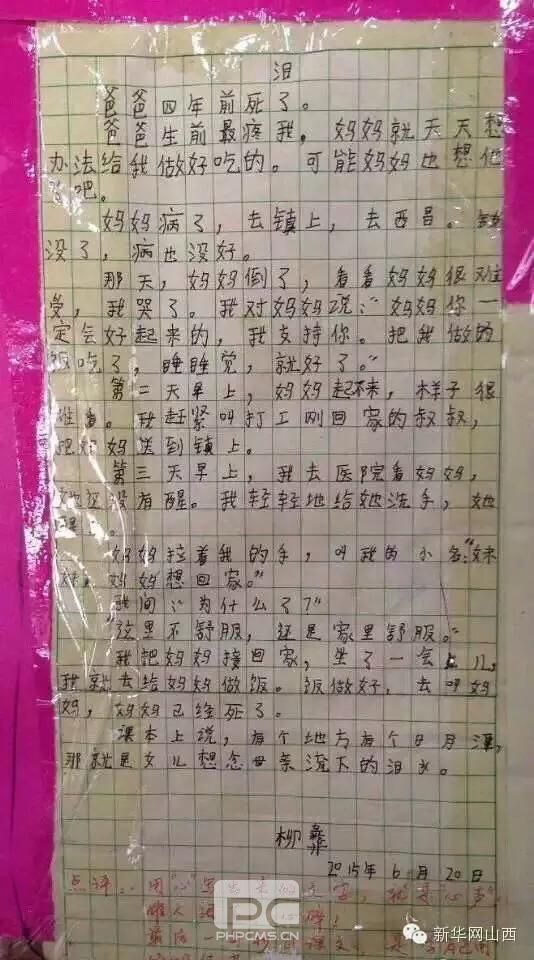 泪
爸爸四年前死了。
爸爸生前最疼我，妈妈就天天想
办法给我做好吃的。可能妈妈也想他
了吧。
妈妈病了，去镇上，去西昌。钱
没了，病也没好。
那天，妈妈倒了，看看妈妈很难
受，我哭了。我对妈妈说：“妈妈你一
定会好起来的，我支持你。把我做的
饭吃了，睡睡觉，就好了。”
第二天早上，妈妈起不来，样子很
难看。我赶紧叫打工刚回家的叔叔，
把妈妈送到镇上。
第三天早上，我去医院看妈妈，
她还没有醒。我轻轻地给她洗手，她
醒了。
妈妈拉着我的手，叫我的小名：“妹
妹，妈妈想回家。”
我问：“为什么了？”
“这里不舒服，还是家里舒服。”
我把妈妈接回家，坐了一会儿，
我就去给妈妈做饭。饭做好，去叫妈
妈，妈妈已经死了。
课本上说，有个地方有个日月潭，
那就是女儿想念母亲流下的泪水。
柳彝
2015年6月20日
点评：用“心”写出来的文字，就是“心声”，
PC
PHPCMS.CN
新华网山西